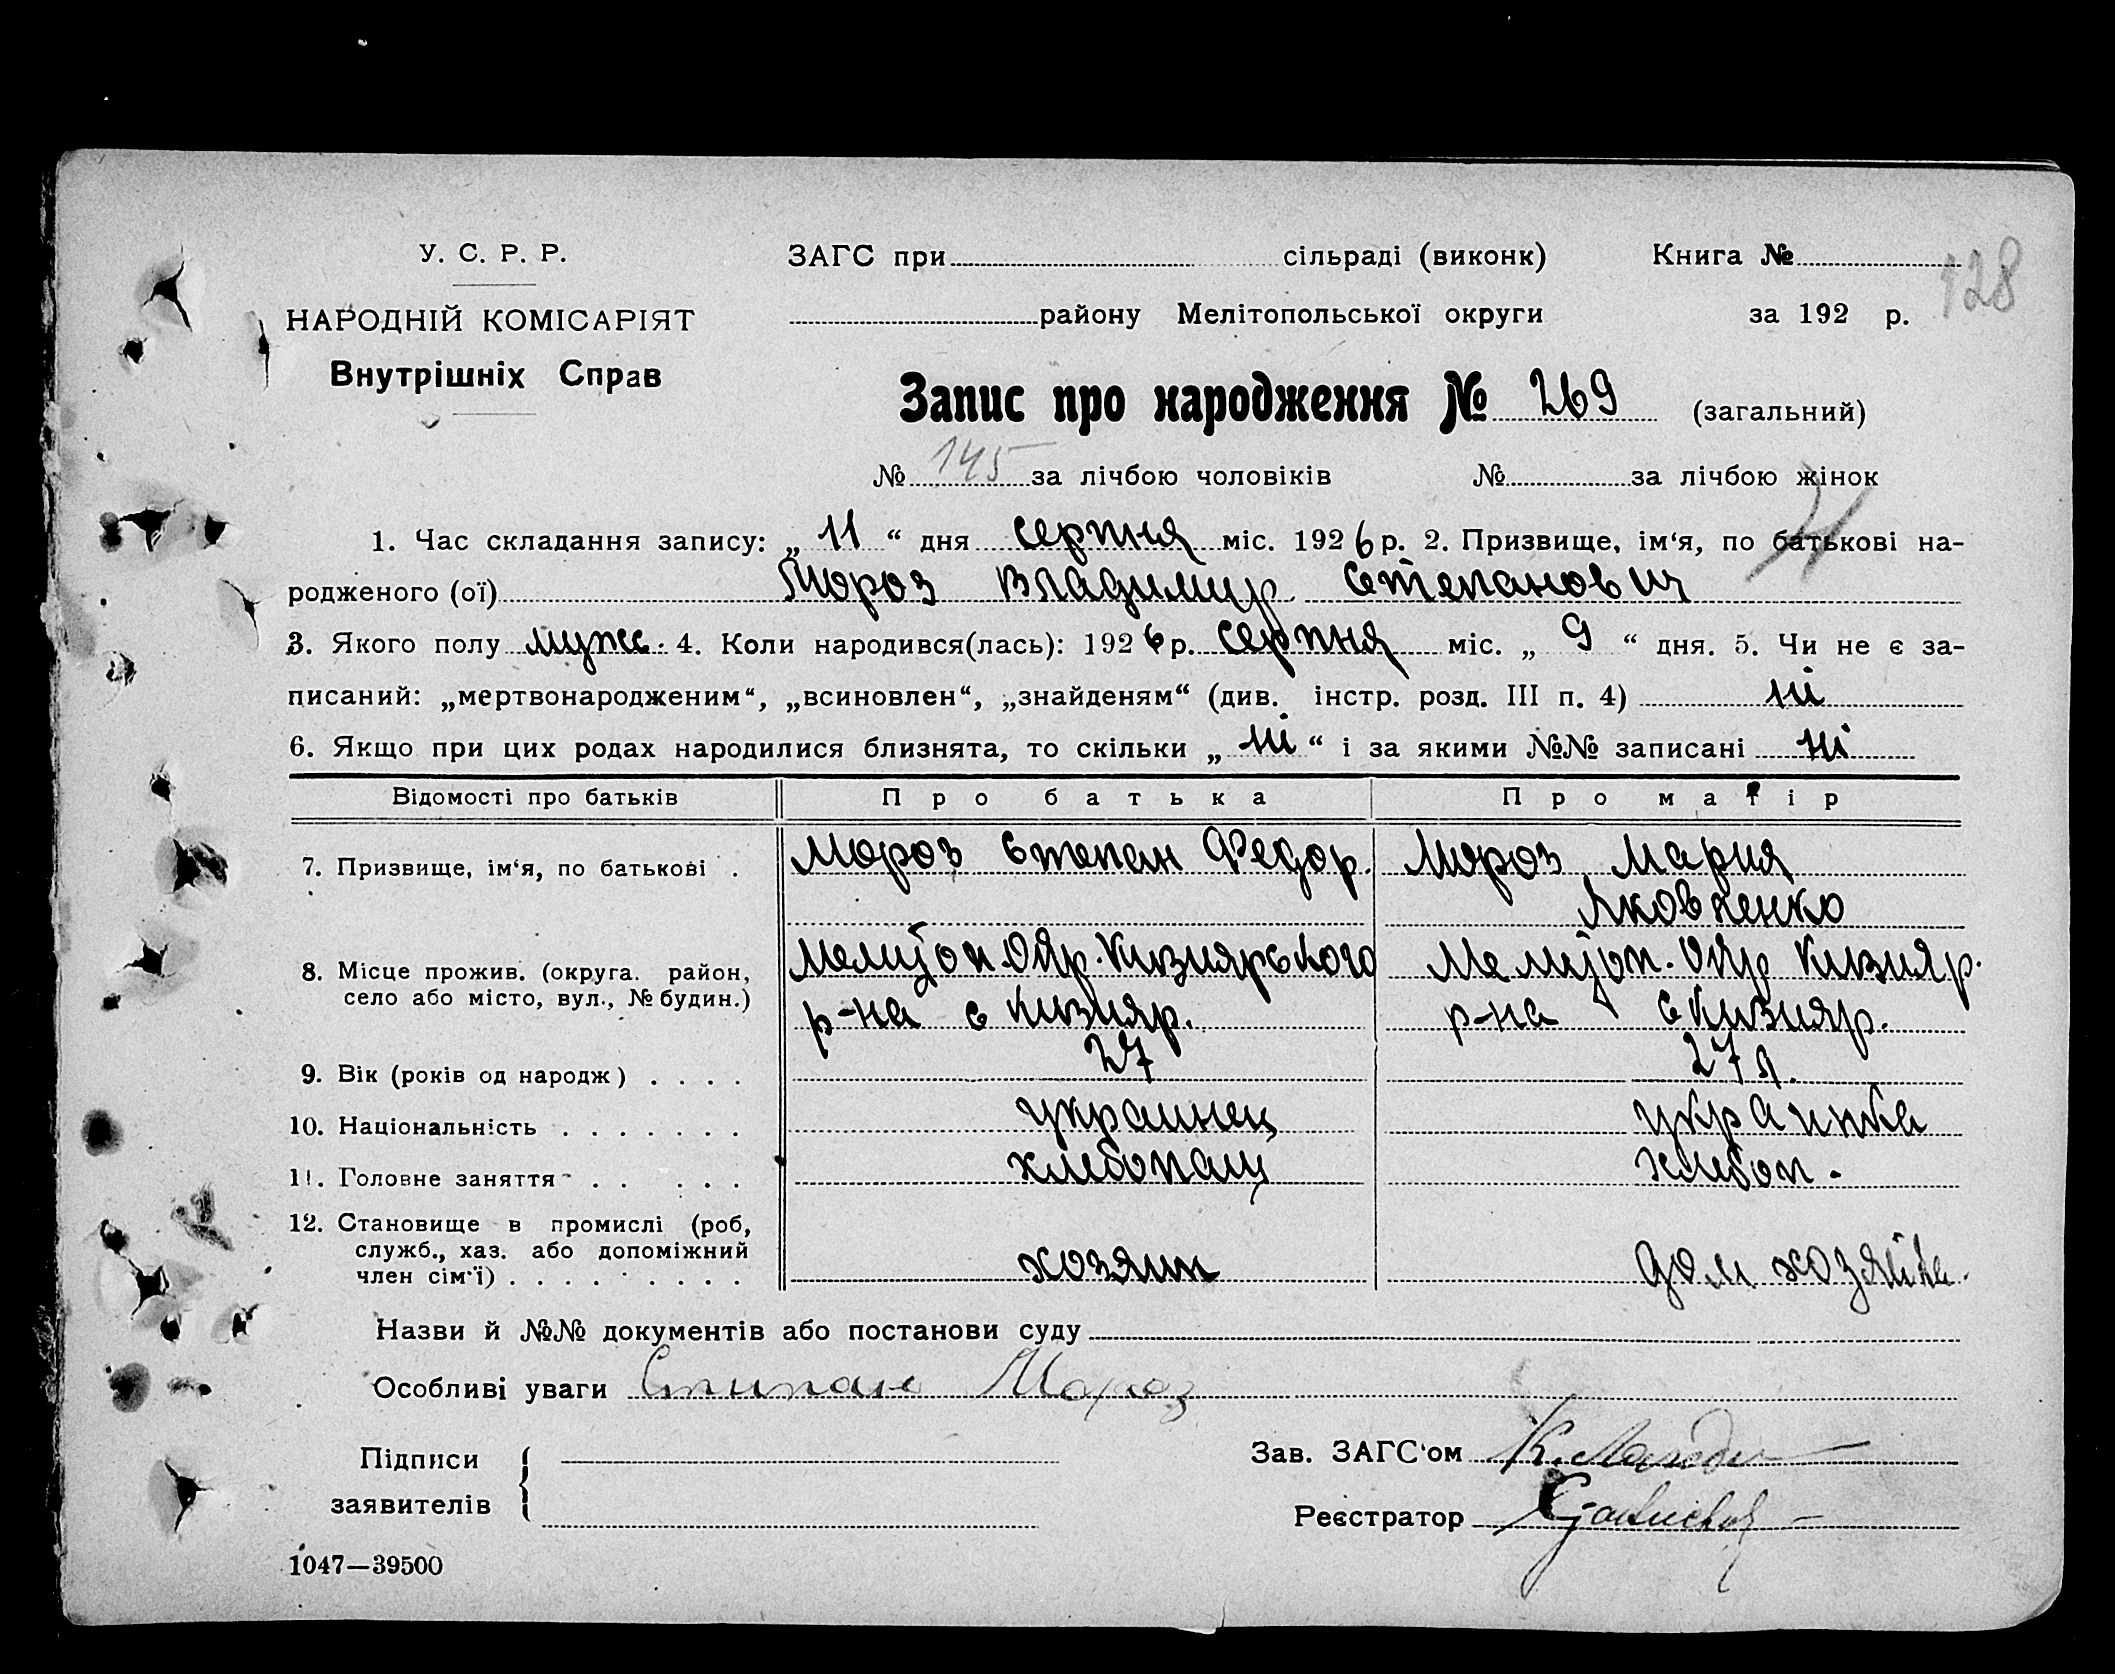 У. С. Р. Р.
НАРОДНІЙ КОМІСАРІЯТ
Внутрішніх Справ
ЗАГС при сільраді (виконк) Книга №
128
району Мелітопольської округи за 192 р.
Запис про народження № 269 (загальний)
№ 145 за лічбою чоловіків № за лічбою жінок
1. Час складання запису: „ 11 “ дня серпня міс. 1926 р. 2. Призвище, ім‘я, по батькові на-
родженого (ої) Мороз Владимир Степанович
3. Якого полу мужс. 4. Коли народився(лась): 1926 р. серпня міс. „ 9 “ дня. 5. Чи не є за-
писаний: „мертвонародженим“, „всиновлен“, „знайденям“ (див. інстр. розд. III п. 4) ні
6. Якщо при цих родах народилися близнята, то скільки „ ні “ і за якими №№ записані ні
Відомості про батьків Про батька Про матір
7. Призвище, ім‘я, по батькові . Мороз Степан Федор. Мороз Мария
Яковленко
8. Місце прожив. (округа. район, Мелітоп. Окр. Кизиярського Мелітоп. Окр Кизияр.
село або місто, вул., № будин.) р-на с Кизияр. р-на с Кизияр.
9. Вік (років од народж) . . . . 27 27 л.
10. Національність . . . . . . . украинец украинка
11. Головне заняття . . . . . хлибопащ хлибоп.
12. Становище в промислі (роб,
служб., хаз. або допоміжний
член сім‘ї) . . . . . . . . . хозяин дом хозяйка.
Назви й №№ документів або постанови суду
Особливі уваги Стипан Мороз
Підписи
заявителів
Зав. ЗАГС‘ом
Реєстратор
1047—39500